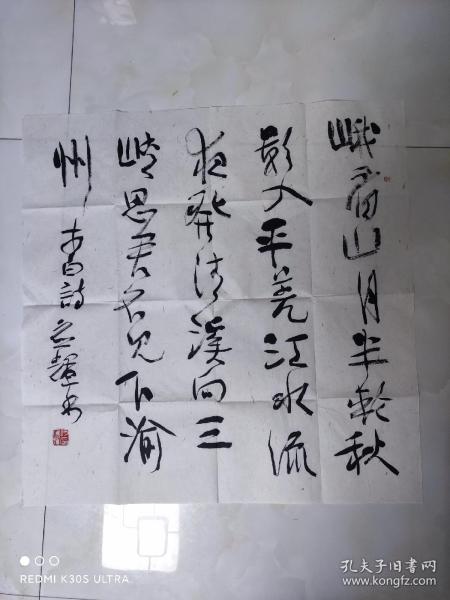 峨眉山月半轮秋
影入平羌江水流
夜发清溪向三
峡思君不见下渝
州 李白诗
REDMI K30S ULTRA
孔夫子旧书网
www.kongfz.com